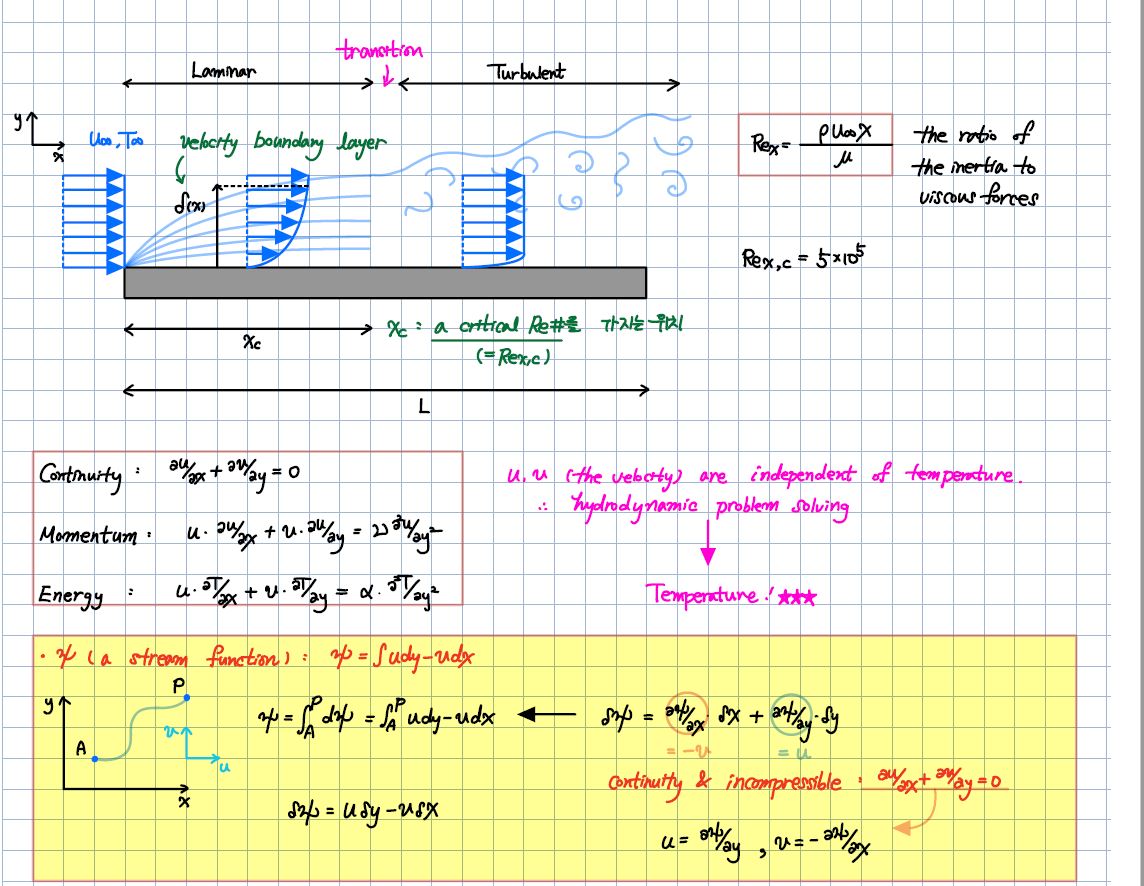 transition
Laminar
Turbulent
y
x
u∞, T∞
velocity boundary layer
δ(x)
Rex = ρu∞x/μ
the ratio of
the inertia to
viscous forces
Rex,c = 5×10⁵
xc
xc : a critical Re#를 가지는 위치
(= Rex,c)
L
Continuity : ∂u/∂x + ∂v/∂y = 0
Momentum : u · ∂u/∂x + v · ∂u/∂y = ν ∂²u/∂y²
Energy : u · ∂T/∂x + v · ∂T/∂y = α · ∂²T/∂y²
u, v (the velocity) are independent of temperature.
∴ hydrodynamic problem solving
Temperature! ★★★
· ψ (a stream function) : ψ = ∫udy - vdx
y
P
A
v
u
x
ψ = ∫_A^P dψ = ∫_A^P udy - vdx
δψ = ∂ψ/∂x · δx + ∂ψ/∂y · δy
= -v
= u
continuity & incompressible : ∂u/∂x + ∂v/∂y = 0
δψ = uδy - vδx
u = ∂ψ/∂y , v = - ∂ψ/∂x